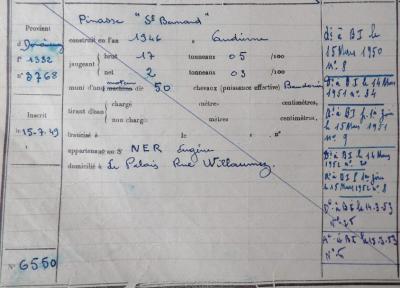 Pinasse "St Bernard"
Provient
d Douarnenez
n° 1332
n° 3768
construit en l'an 1946 à Audierne
jaugeant
brut 17 tonneaux 05 /100
net 2 tonneaux 03 /100
muni d'un moteur de 50 chevaux (puissance effective) Baudouin
tirant d'eau
chargé mètre centimètres,
non chargé mètre centimètres,
Inscrit
le 15.7.49
francisé à le n°
appartenant au Sr NER Eugène
domicilié à Le Palais Rue Willaumez
N° 6550
Dé à BI le
15 Mars 1950
N° 8
Dé à BI le 14 Mars
1951 n° 34
R à BI
le 15 Mars 1951
n° 9
Dé à BI le 14 Mars
1952 n°
le 15 Mars 1952 n° 8
Dé à BI le 14.3.53
N° 25
à BI le 15.3.53
N° 5